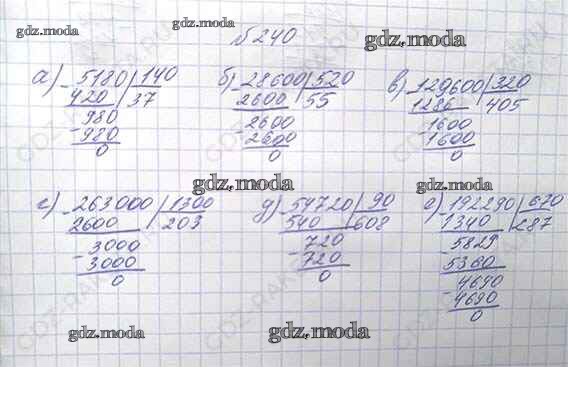 gdz.moda
gdz.moda
№240
gdz.moda
а) - 5180 | 140
420 | 37
- 980
980
0
б) - 28600 | 520
2600 | 55
- 2600
2600
0
в) - 129600 | 320
1286 | 405
- 1600
1600
0
gdz.moda
г) - 263000 | 1300
2600 | 203
- 3000
3000
0
д) - 54720 | 90
540 | 608
- 720
720
0
е) - 192290 | 670
1340 | 287
- 5829
5360
- 4690
4690
0
gdz.moda
gdz.moda